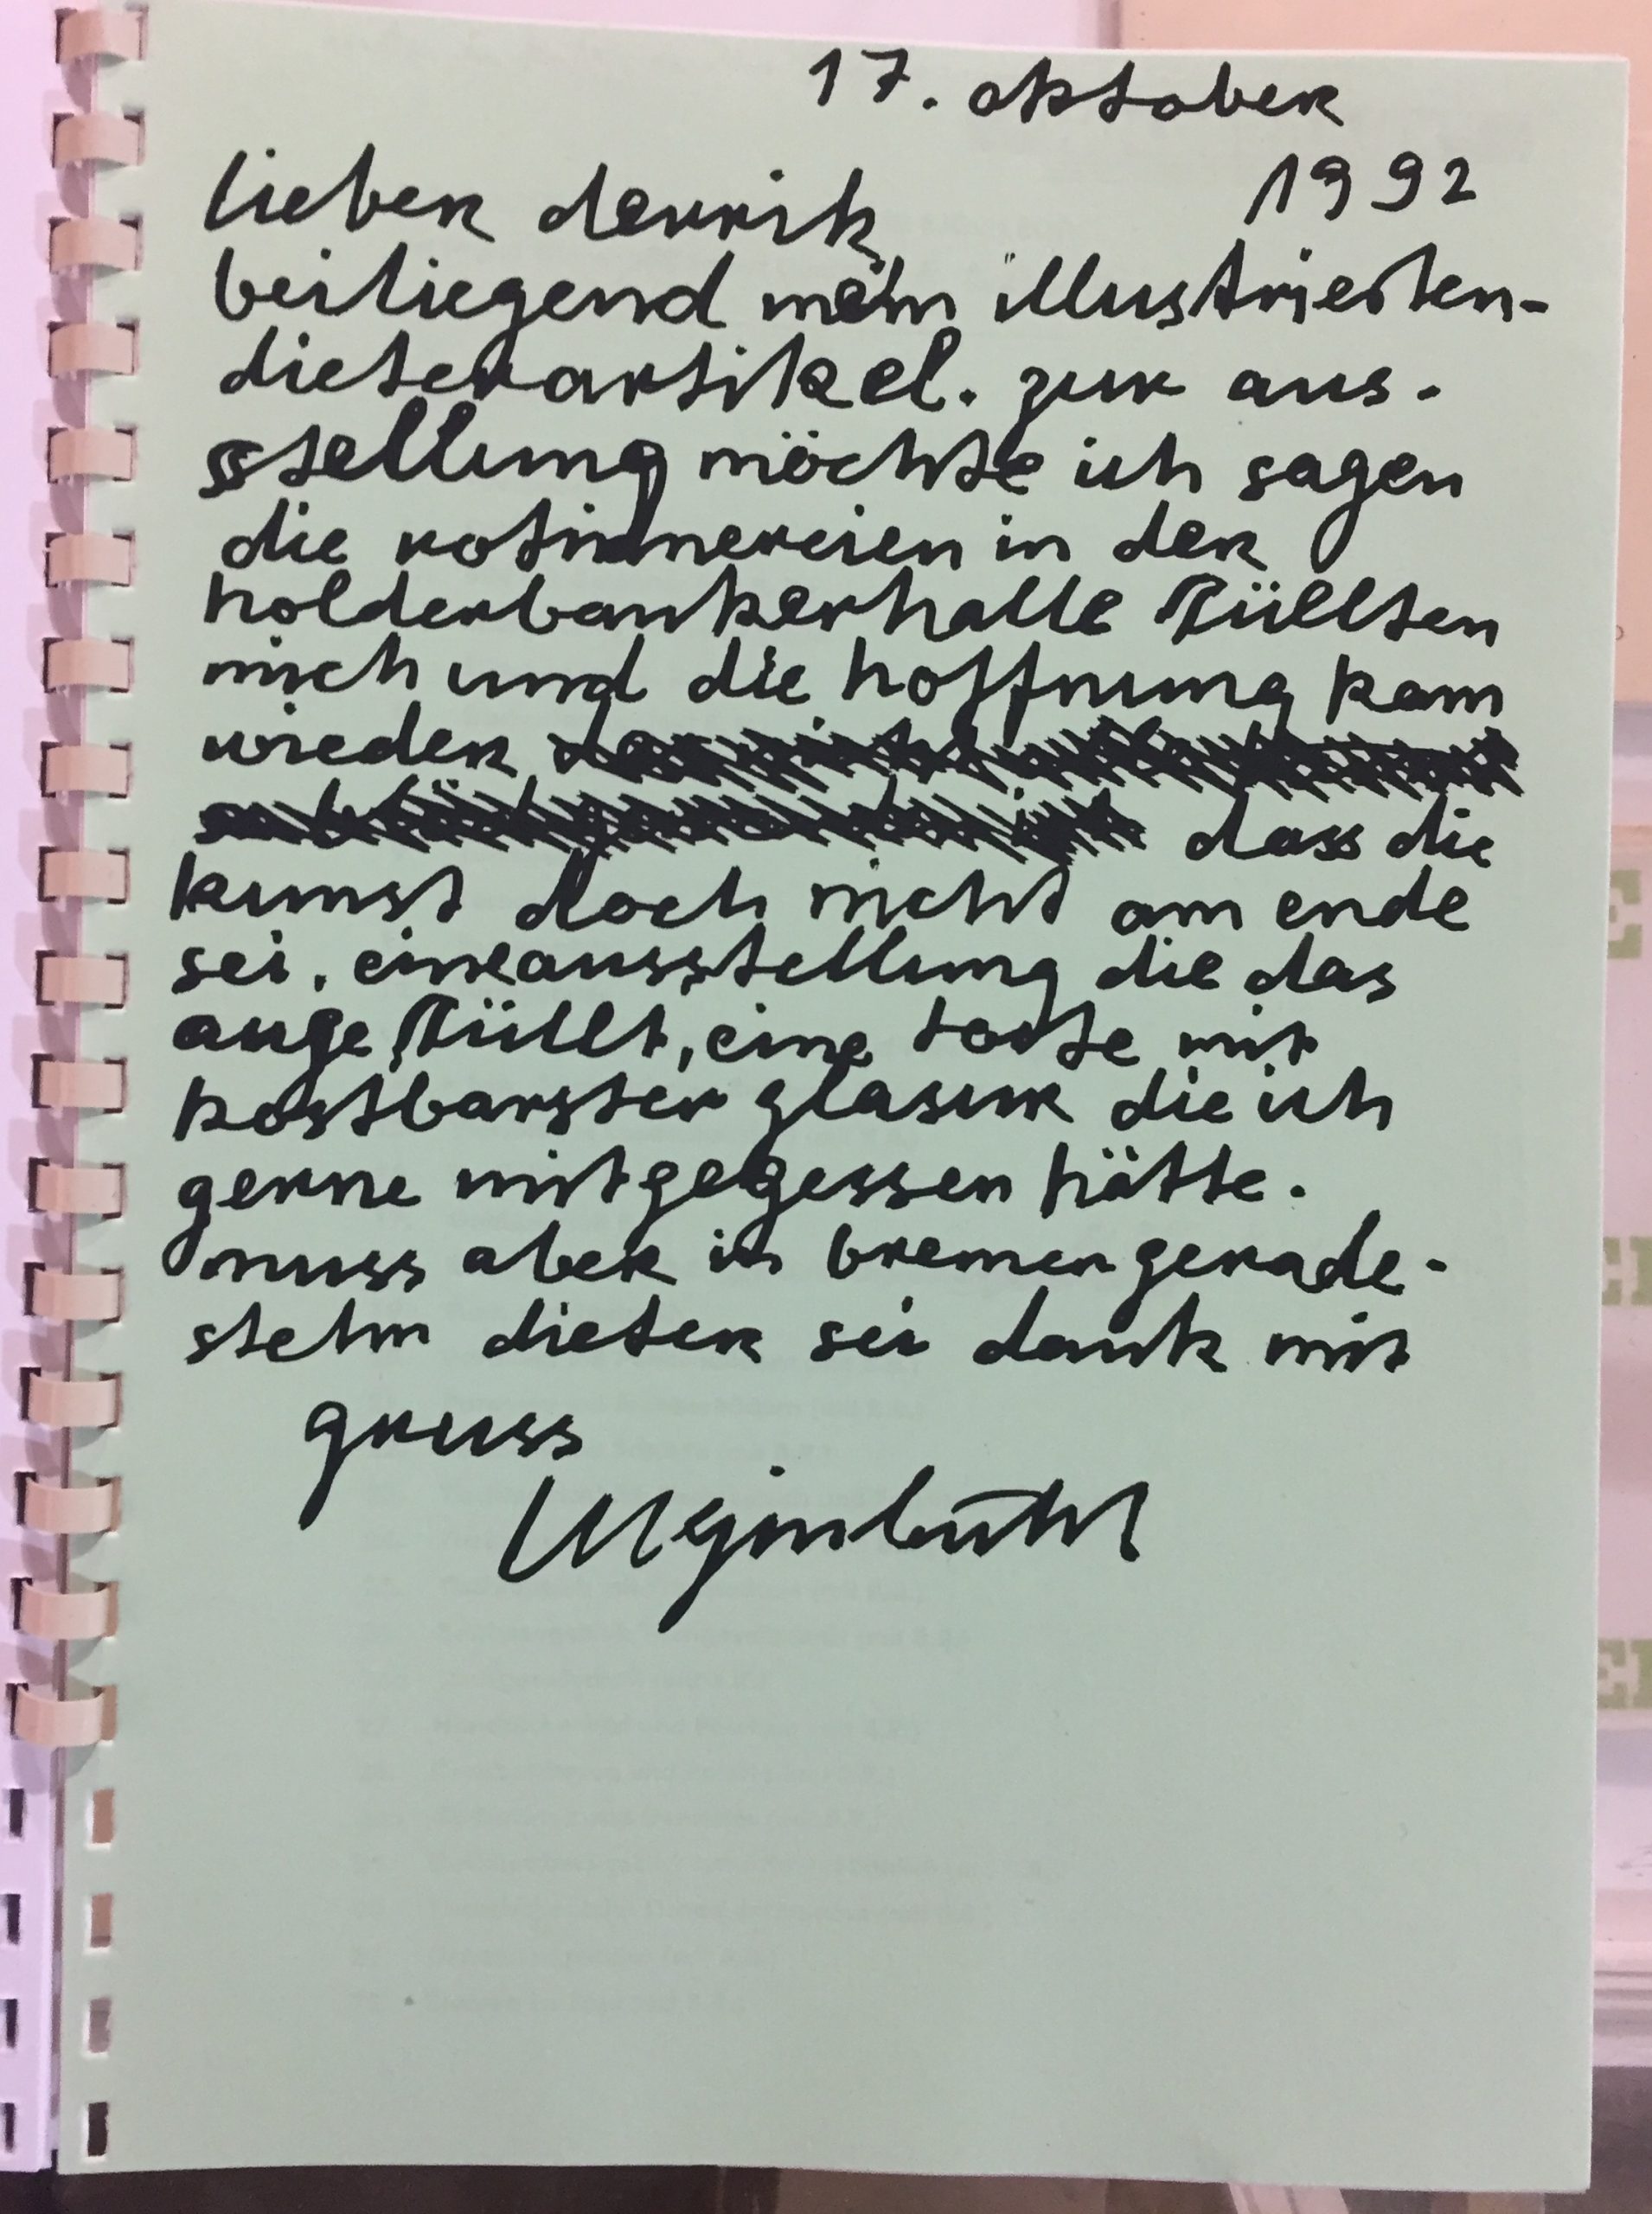 17. oktober
1992
lieber derrik
beiliegend mein illustrierten-
dieterartikel. zur aus-
sstellung möchte ich sagen
die rotinnereien in der
holderbankerhalle füllten
mich und die hoffnung kam
wieder
dass die
kunst doch nicht am ende
sei. eineausstellung die das
auge füllt, eine torte mit
kostbarster glasur die ich
gerne mitgegessen hätte.
muss aber in bremen gerade-
stehn dieter sei dank mit
gruss